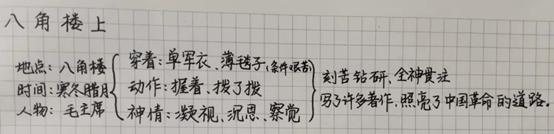 八角楼上
地点：八角楼
时间：寒冬腊月
人物：毛主席
穿着：单军衣、薄毯子（条件艰苦）
动作：握着、拨了拨
神情：凝视、沉思、察觉
刻苦钻研，全神贯注
写了许多著作，照亮了中国革命的道路。